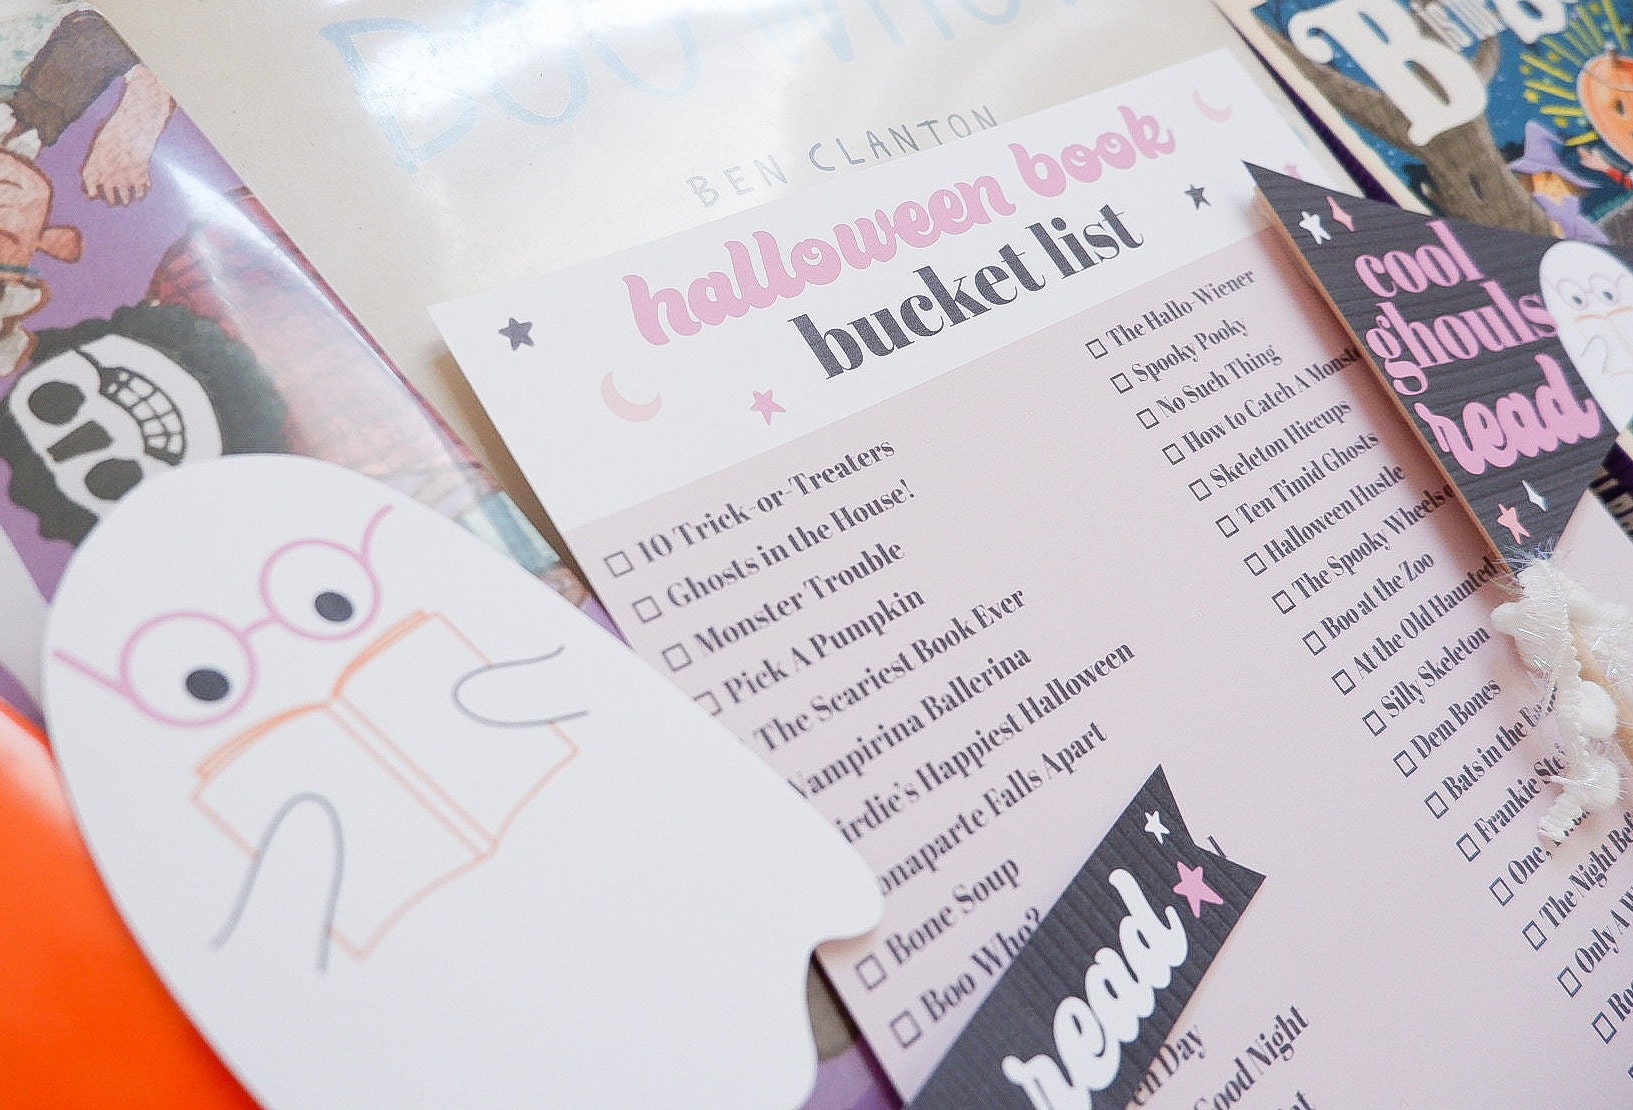 BOO WHO?
BEN CLANTON
halloween book
bucket list
10 Trick-or-Treaters
Ghosts in the House!
Monster Trouble
Pick A Pumpkin
The Scariest Book Ever
Vampirina Ballerina
Happiest Halloween
Falls Apart
Bone Soup
Boo Who?
Day
Good Night
The Hallo-Wiener
Spooky Pooky
No Such Thing
How to Catch A
Skeleton Hiccups
Ten Timid Ghosts
Halloween Hustle
The Spooky Wheels
Boo at the Zoo
At the Old Haunted
Silly Skeleton
Dem Bones
Bats in the
Frankie
One,
The Night
Only A
cool
ghouls
read
read
B is